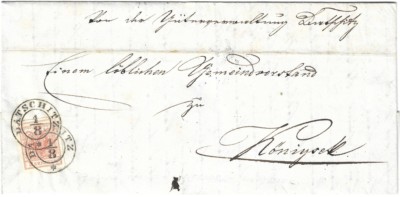 Von der Güterverwaltung Datschitz
Einem löblichen Gemeindvorstand
zu
Königseck
DATSCHITZ
1/8
1/8